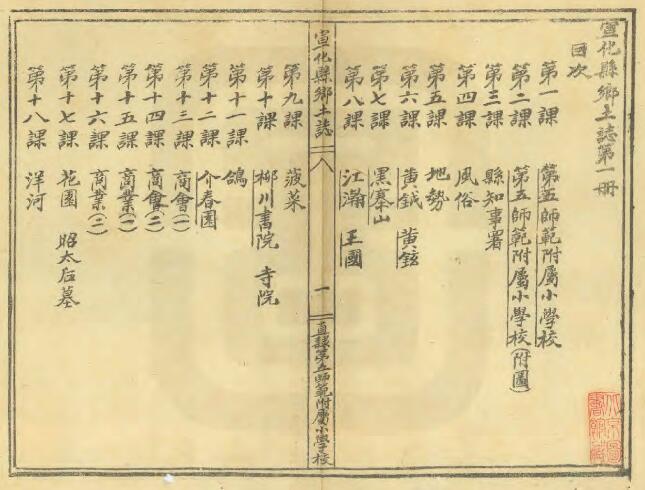 宣化縣鄉土誌第一冊
目次
第一課 第五師範附屬小學校
第二課 第五師範附屬小學校(附圖)
第三課 縣知事署
第四課 風俗
第五課 地勢
第六課 黃鉞 黃鉉
第七課 黑寨山
第八課 江瀚 王國
宣化縣鄉土誌
一
直隸第五師範附屬小學校
第九課 菠菜
第十課 柳川書院 寺院
第十一課 鴿
第十二課 介春園
第十三課 商會(一)
第十四課 商會(二)
第十五課 商業(一)
第十六課 商業(二)
第十七課 花園 昭太后墓
第十八課 洋河